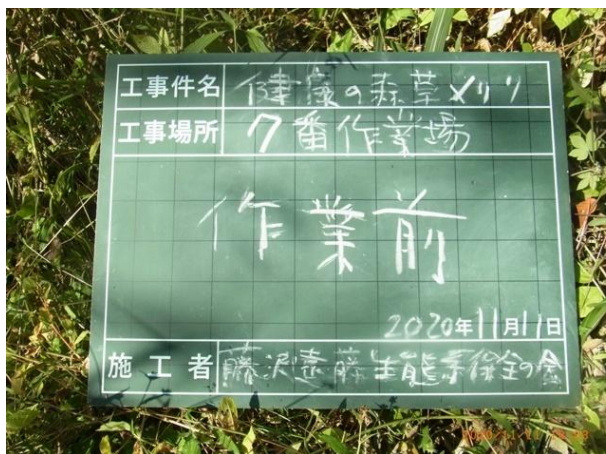 工事件名 健康の森草メリリ
工事場所 7番作業場
作業前
2020年11月11日
施工者 藤沢遠藤生態系保全の会